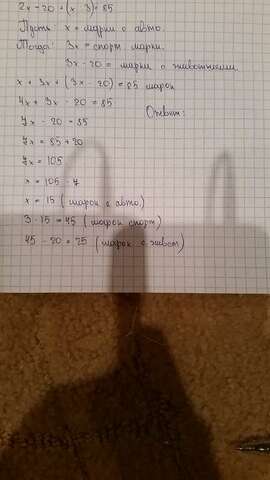 2x - 20 + (x · 3) = 85
Пусть x = марки о авто.
Тогда: 3x = спорт. марки.
3x - 20 = марки о животными
x + 3x + (3x - 20) = 85 марок
4x + 3x - 20 = 85
Ответ:
7x - 20 = 85
7x = 85 + 20
7x = 105
x = 105 : 7
x = 15 (марок с авто.)
3 · 15 = 45 (марок спорт)
45 - 20 = 25 (марок с живот)